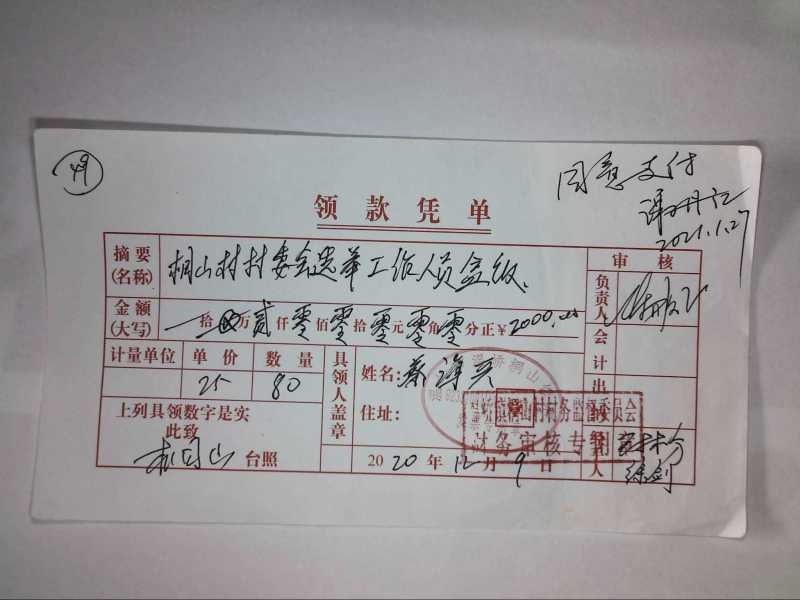 49
同意支付
2021.1.27
领款凭单
摘要(名称) 桐山村村委会选举工作人员盒饭 审核
金额(大写) 拾 万贰仟零佰零拾零元零角零分正¥2000.00 负责人
计量单位 单价 数量 具领人盖章 姓名: 会计
25 80 住址: 出纳
上列具领数字是实
此致
台照 2020年12月9日
村务监督委员会
财务审核专用
徐剑